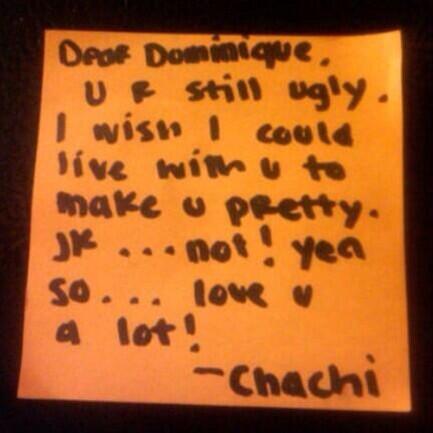 Dear Dominique,
U R still ugly.
I wish I could
live with u to
make u pretty.
JK ... not! yea
so... love u
a lot!
- Chachi